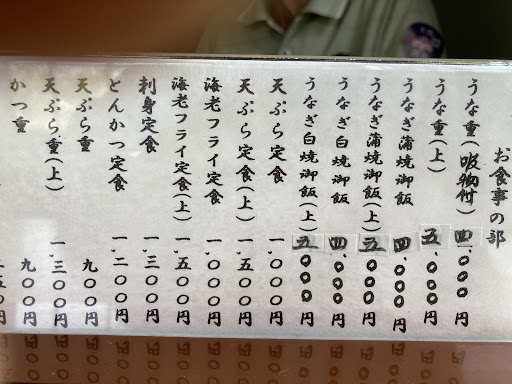 お食事の部
うな重(吸物付) 四、〇〇〇円
うな重(上) 五、〇〇〇円
うなぎ蒲焼御飯 四、〇〇〇円
うなぎ蒲焼御飯(上) 五、〇〇〇円
うなぎ白焼御飯 四、〇〇〇円
うなぎ白焼御飯(上) 五、〇〇〇円
天ぷら定食 一、〇〇〇円
天ぷら定食(上) 一、五〇〇円
海老フライ定食 一、〇〇〇円
海老フライ定食(上) 一、五〇〇円
刺身定食 一、三〇〇円
とんかつ定食 一、二〇〇円
天ぷら重 九〇〇円
天ぷら重(上) 一、三〇〇円
かつ重 九〇〇円
五〇円